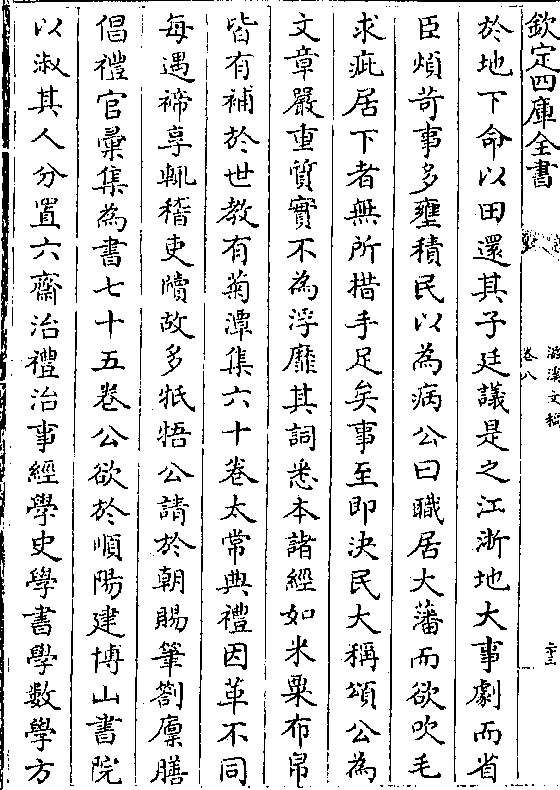 欽定四庫全書
滋溪文稿
卷八
於地下命以田還其子廷議是之江浙地大事劇而省
臣煩苛事多壅積民以為病公曰職居大藩而欲吹毛
求疵居下者無所措手足矣事至即決民大稱頌公為
文章嚴重質實不為浮靡其詞悉本諸經如米粟布帛
皆有補於世教有菊潭集六十卷太常典禮因革不同
每遇禘享輒稽吏牘故多牴牾公請於朝賜筆劄廩膳
倡禮官彙集為書七十五卷公欲於順陽建博山書院
以淑其人分置六齋治禮治事經學史學書學數學方